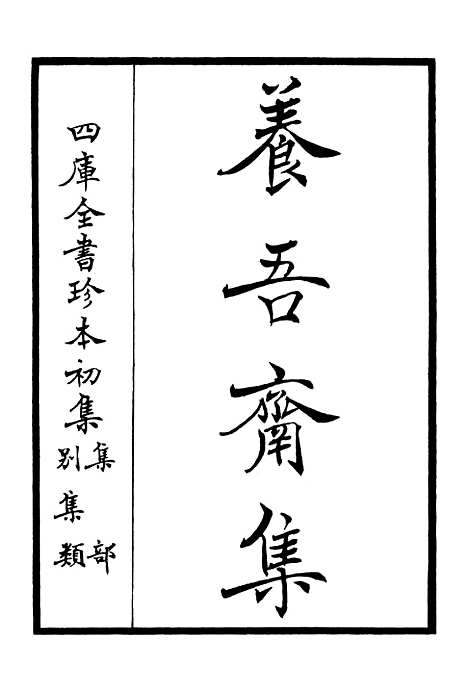 養吾齋集
四庫全書珍本初集
集部
別集類